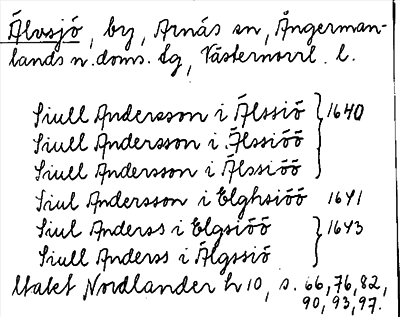 Älvsjö, by, Arnäs sn, Ångerman-
lands n. doms. tg, Västernorrl. l.
Siull Andersson i Älssiö } 1640
Siull Andersson i Älssiöö
Siull Andersson i Älssiöö
Siul Andersson i Elghsiöö 1641
Siul Anderss i Elgsiöö } 1643
Siull Anderss i Älgssiö
Utakt Nordlander h 10, s. 66, 76, 82,
90, 93, 97.